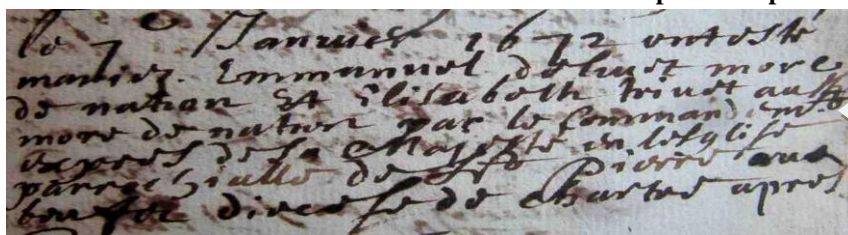 le 7e Januier 1672 ont esté
mariez. Emmanuel deluet more
de nation Et Elisabeth triuet aussy
more de nation par le Commandement
expres de sa Majesté en lesglise
parrochialle de St Pierre aux
boeufs diocese de Chartre apres